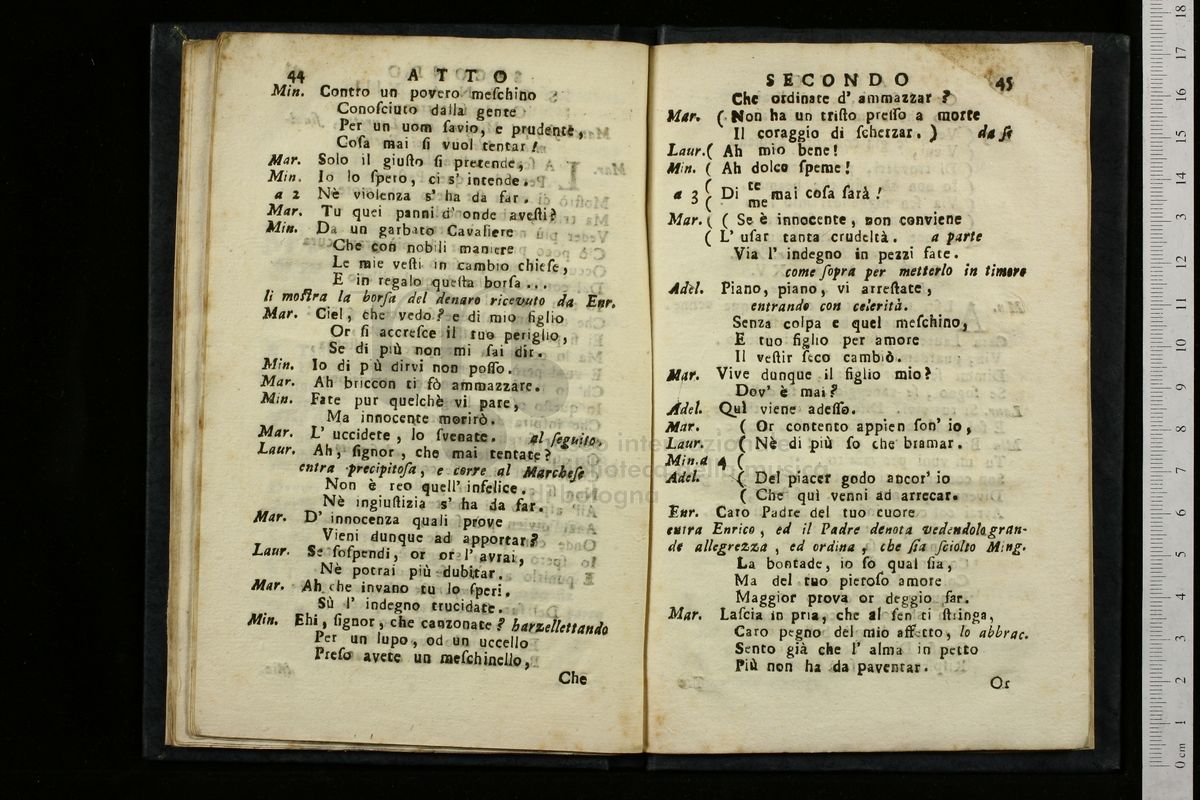 44 ATTO
Min. Contro un povero meſchino
Conoſciuto dalla gente
Per un uom ſavio, e prudente,
Coſa mai ſi vuol tentar!
Mar. Solo il giuſto ſi pretende,
Min. Io lo ſpero, ci s' intende.
a 2 Nè violenza s' ha da far.
Mar. Tu quei panni d' onde aveſti?
Min. Da un garbato Cavaliere
Che con nobili maniere
Le mie veſti in cambio chieſe,
E in regalo queſta borſa...
li moſtra la borſa del denaro ricevuto da Enr.
Mar. Ciel, che vedo? e di mio figlio
Or ſi accreſce il tuo periglio,
Se di più non mi ſai dir.
Min. Io di più dirvi non poſſo.
Mar. Ah briccon ti fò ammazzare.
Min. Fate pur quelchè vi pare,
Ma innocente morirò.
Mar. L' uccidete, lo ſvenate. al ſeguito.
Laur. Ah, ſignor, che mai tentate?
entra precipitoſa, e corre al Marcheſe
Non è reo quell' infelice.
Nè ingiuſtizia s' ha da far.
Mar. D' innocenza quali prove
Vieni dunque ad apportar?
Laur. Se ſoſpendi, or or l' avrai,
Nè potrai più dubitar.
Mar. Ah che invano tu lo ſperi.
Sù l' indegno trucidate.
Min. Ehi, ſignor, che canzonate? barzellettando
Per un lupo, od un uccello
Preſo avete un meſchinello,
Che
SECONDO 45
Che ordinate d' ammazzar?
Mar. (Non ha un triſto preſſo a morte
Il coraggio di ſcherzar.) da ſe
Laur. ( Ah mio bene!
Min. ( Ah dolce ſpeme!
a 3 ( Di te me mai coſa ſarà!
Mar. ( ( Se è innocente, non conviene
( L' uſar tanta crudeltà. a parte
Via l' indegno in pezzi fate.
come ſopra per metterlo in timore
Adel. Piano, piano, vi arreſtate,
entrando con celerità.
Senza colpa e quel meſchino,
E tuo figlio per amore
Il veſtir ſeco cambiò.
Mar. Vive dunque il figlio mio?
Dov' è mai?
Adel. Quì viene adeſſo.
Mar. ( Or contento appien ſon' io,
Laur. ( Nè di più ſo che bramar.
Min. a 4 (
Adel. ( Del piacer godo ancor' io
( Che quì venni ad arrecar.
Enr. Caro Padre del tuo cuore
entra Enrico, ed il Padre denota vedendolo gran-
de allegrezza, ed ordina, che ſia ſciolto Ming.
La bontade, io ſo qual ſia,
Ma del tuo pietoſo amore
Maggior prova or deggio far.
Mar. Laſcia in pria, che al ſen ti ſtringa,
Caro pegno del mio affetto, lo abbrac.
Sento già che l' alma in petto
Più non ha da paventar.
Or